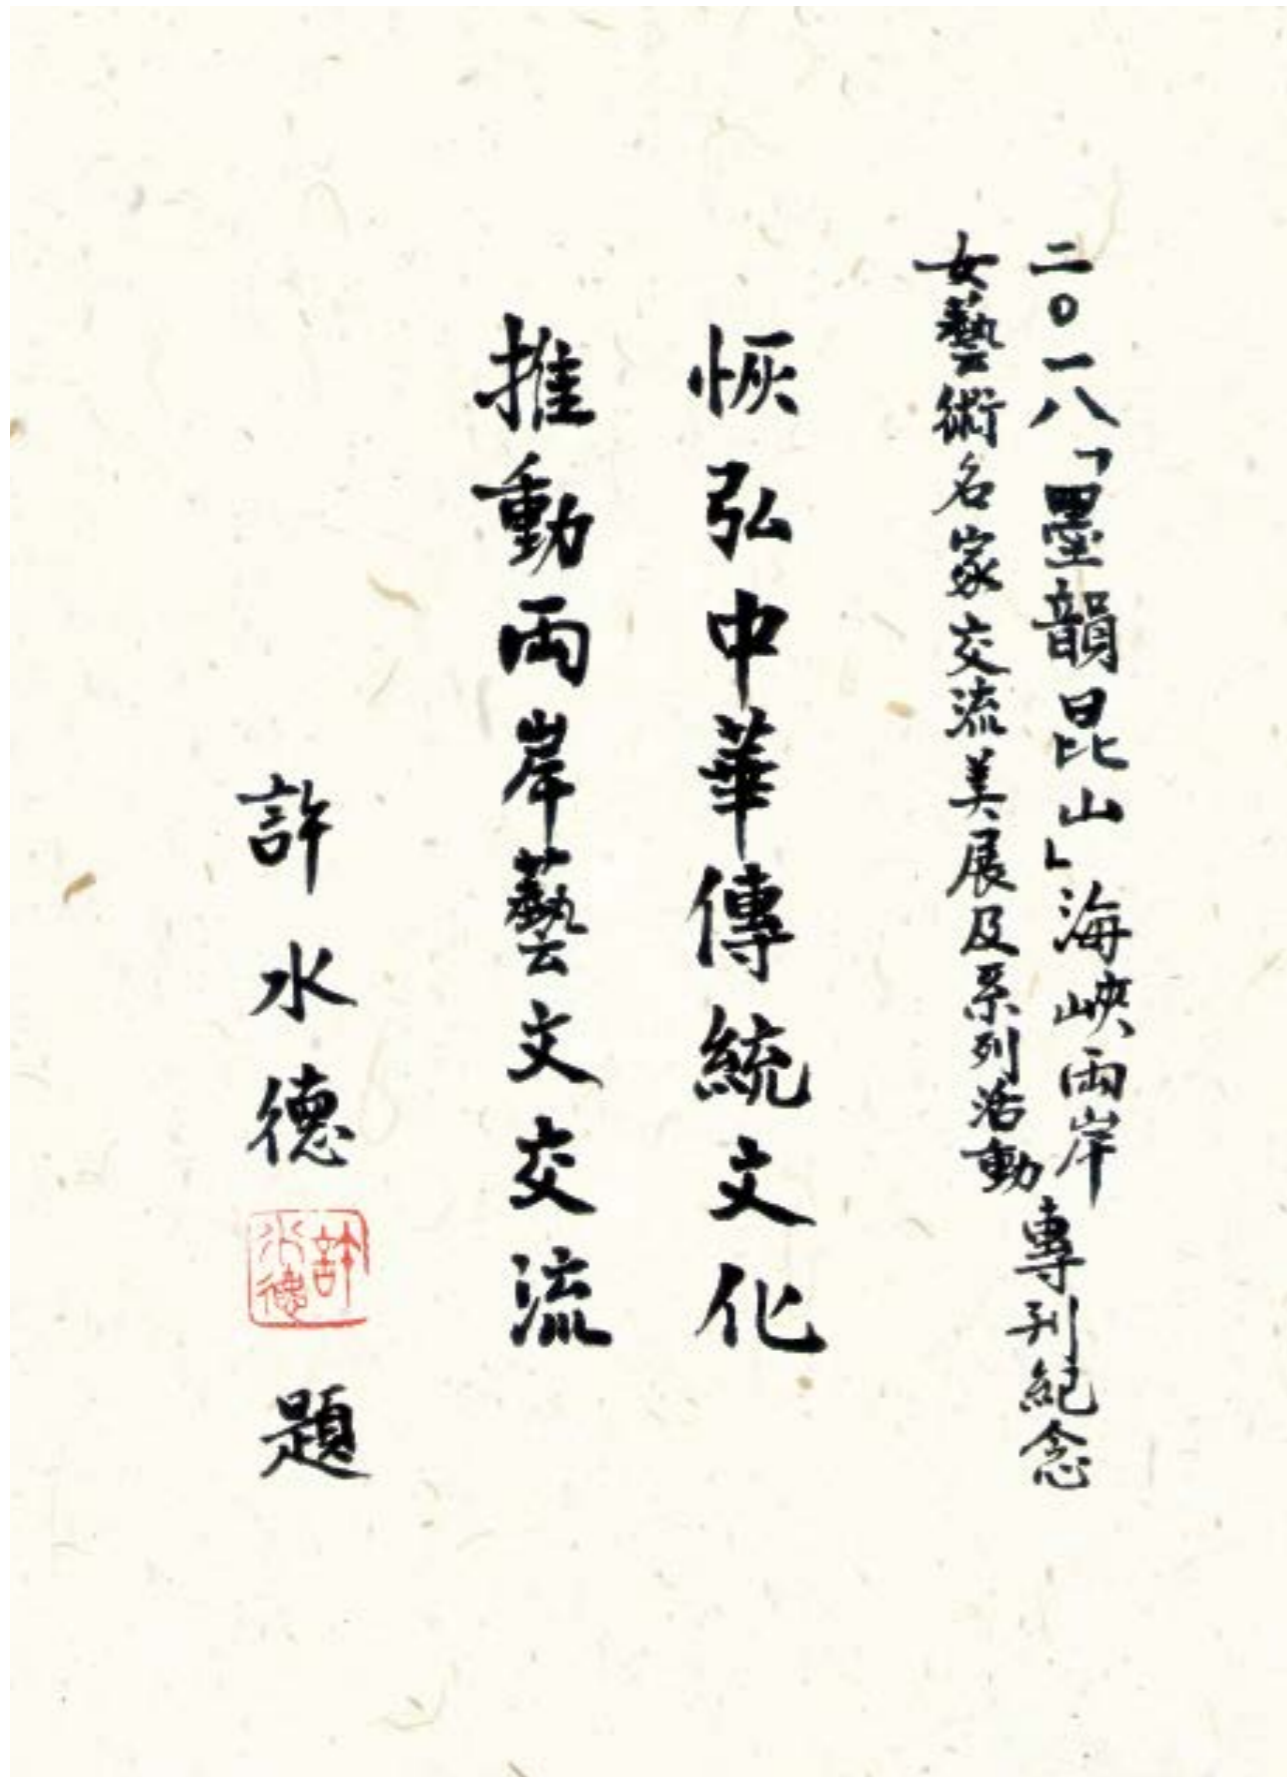 二〇一八「墨韻昆山」海峽兩岸
女藝術名家交流美展及系列活動
專刊紀念
恢弘中華傳統文化
推動兩岸藝文交流
許水德
許水德
題